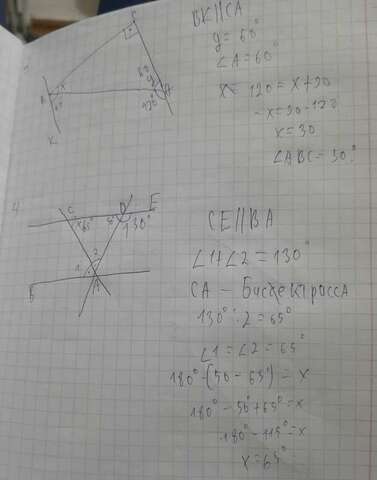 BK||CA
y = 60°
∠A = 60°
x = 120 = x + 90
-x = 90 - 120
x = 30
∠ABC = 30°
C
x
120°
K
4
C
D
E
x 65°
130°
2
1
B
A
CE||BA
∠1+∠2 = 130°
CA - Бисектросса
130° : 2 = 65°
∠1 = ∠2 = 65°
180° - (50 - 65°) = x
180° - 50 + 65° = x
180° - 115° = x
x = 65°